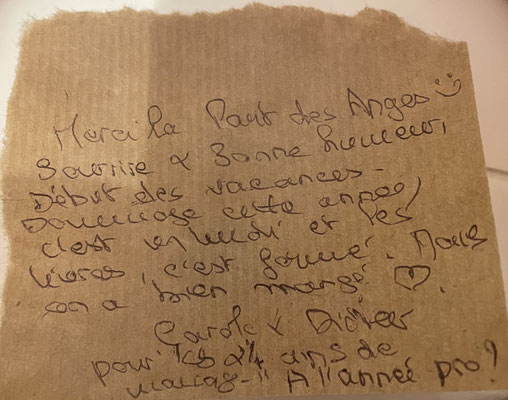 Merci la Part des Anges :)
Sourire & Bonne humeur,
Début des vacances -
Dommage cette année,
c'est un lundi et les
livres, c'est fermé. Mais
on a bien mangé ♡.
Carole & Didier
pour les 24 ans de
mariage !! A l'année pro !